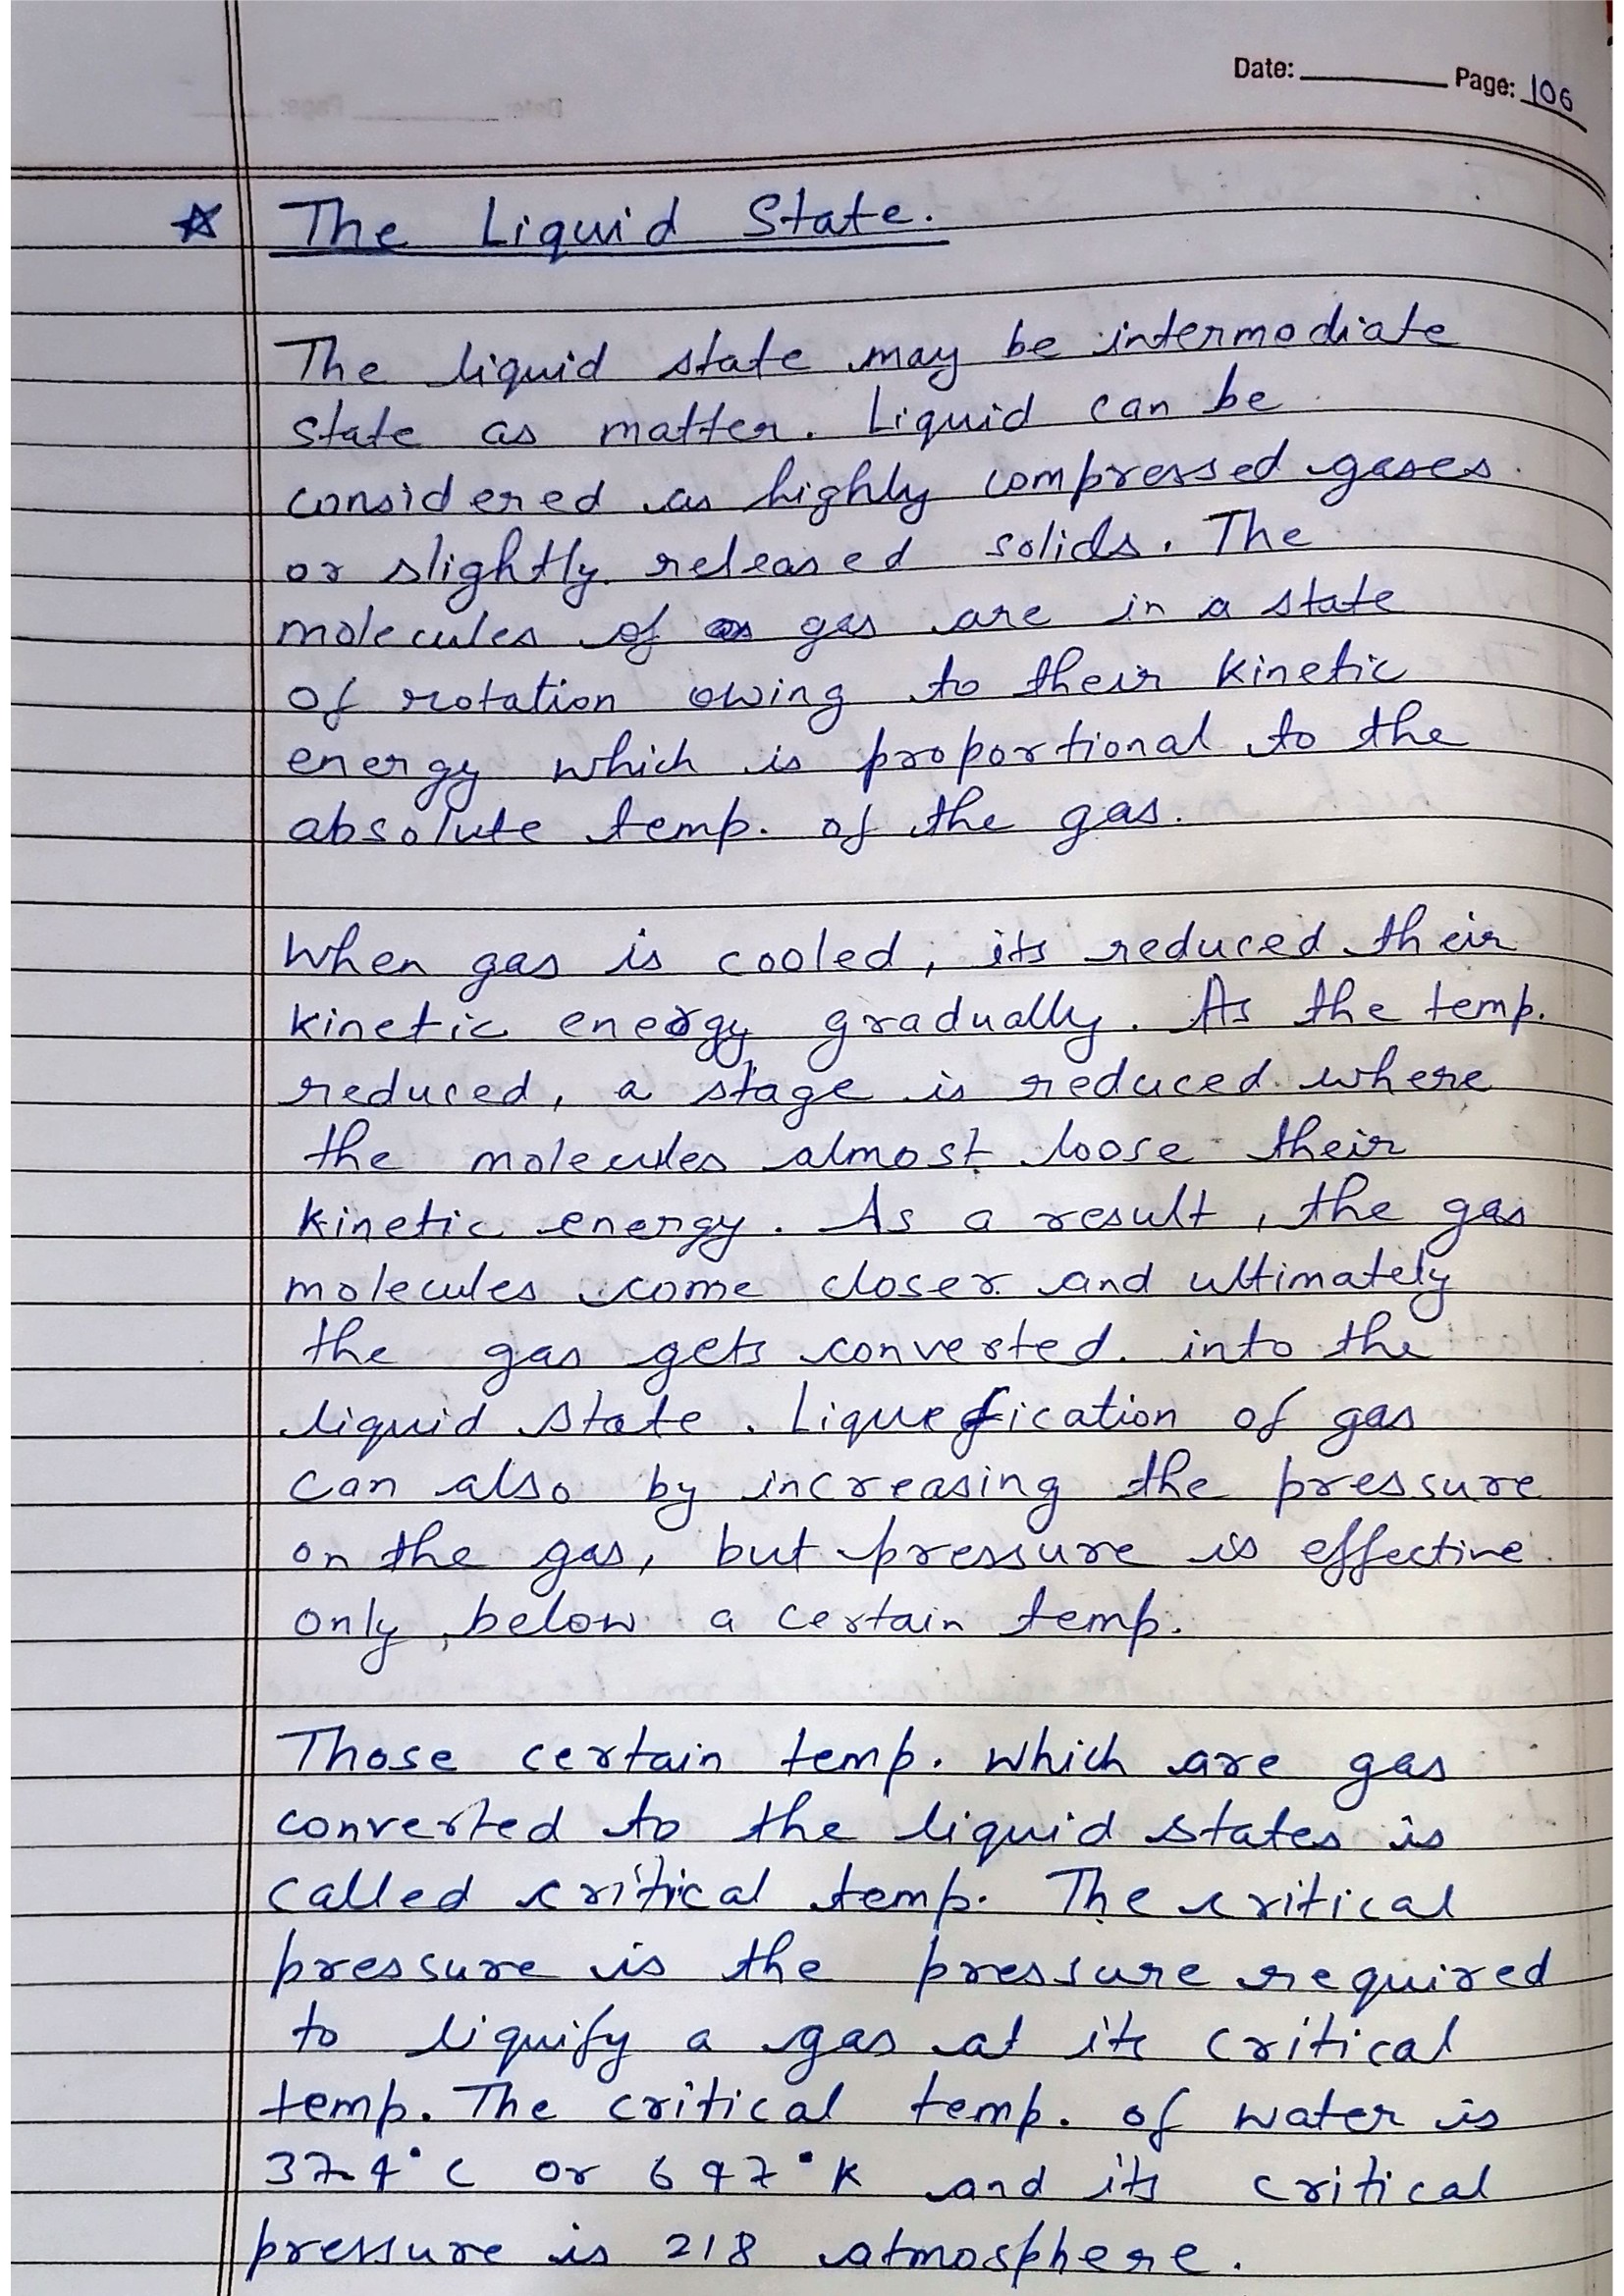 Date: Page: 106
☆ The Liquid State.
The liquid state may be intermediate
state as matter. Liquid can be
considered as highly compressed gases
or slightly released solids. The
molecules of gas are in a state
of rotation owing to their kinetic
energy which is proportional to the
absolute temp. of the gas.
When gas is cooled, its reduced their
kinetic energy gradually. As the temp.
reduced, a stage is reduced where
the molecules almost loose their
kinetic energy. As a result, the gas
molecules come closer and ultimately
the gas gets converted into the
liquid state. Liquefication of gas
can also by increasing the pressure
on the gas, but pressure is effective
only below a certain temp.
Those certain temp. which are gas
converted to the liquid states is
called critical temp. The critical
pressure is the pressure required
to liquify a gas at its critical
temp. The critical temp. of water is
374°C or 647°K and its critical
pressure is 218 atmosphere.